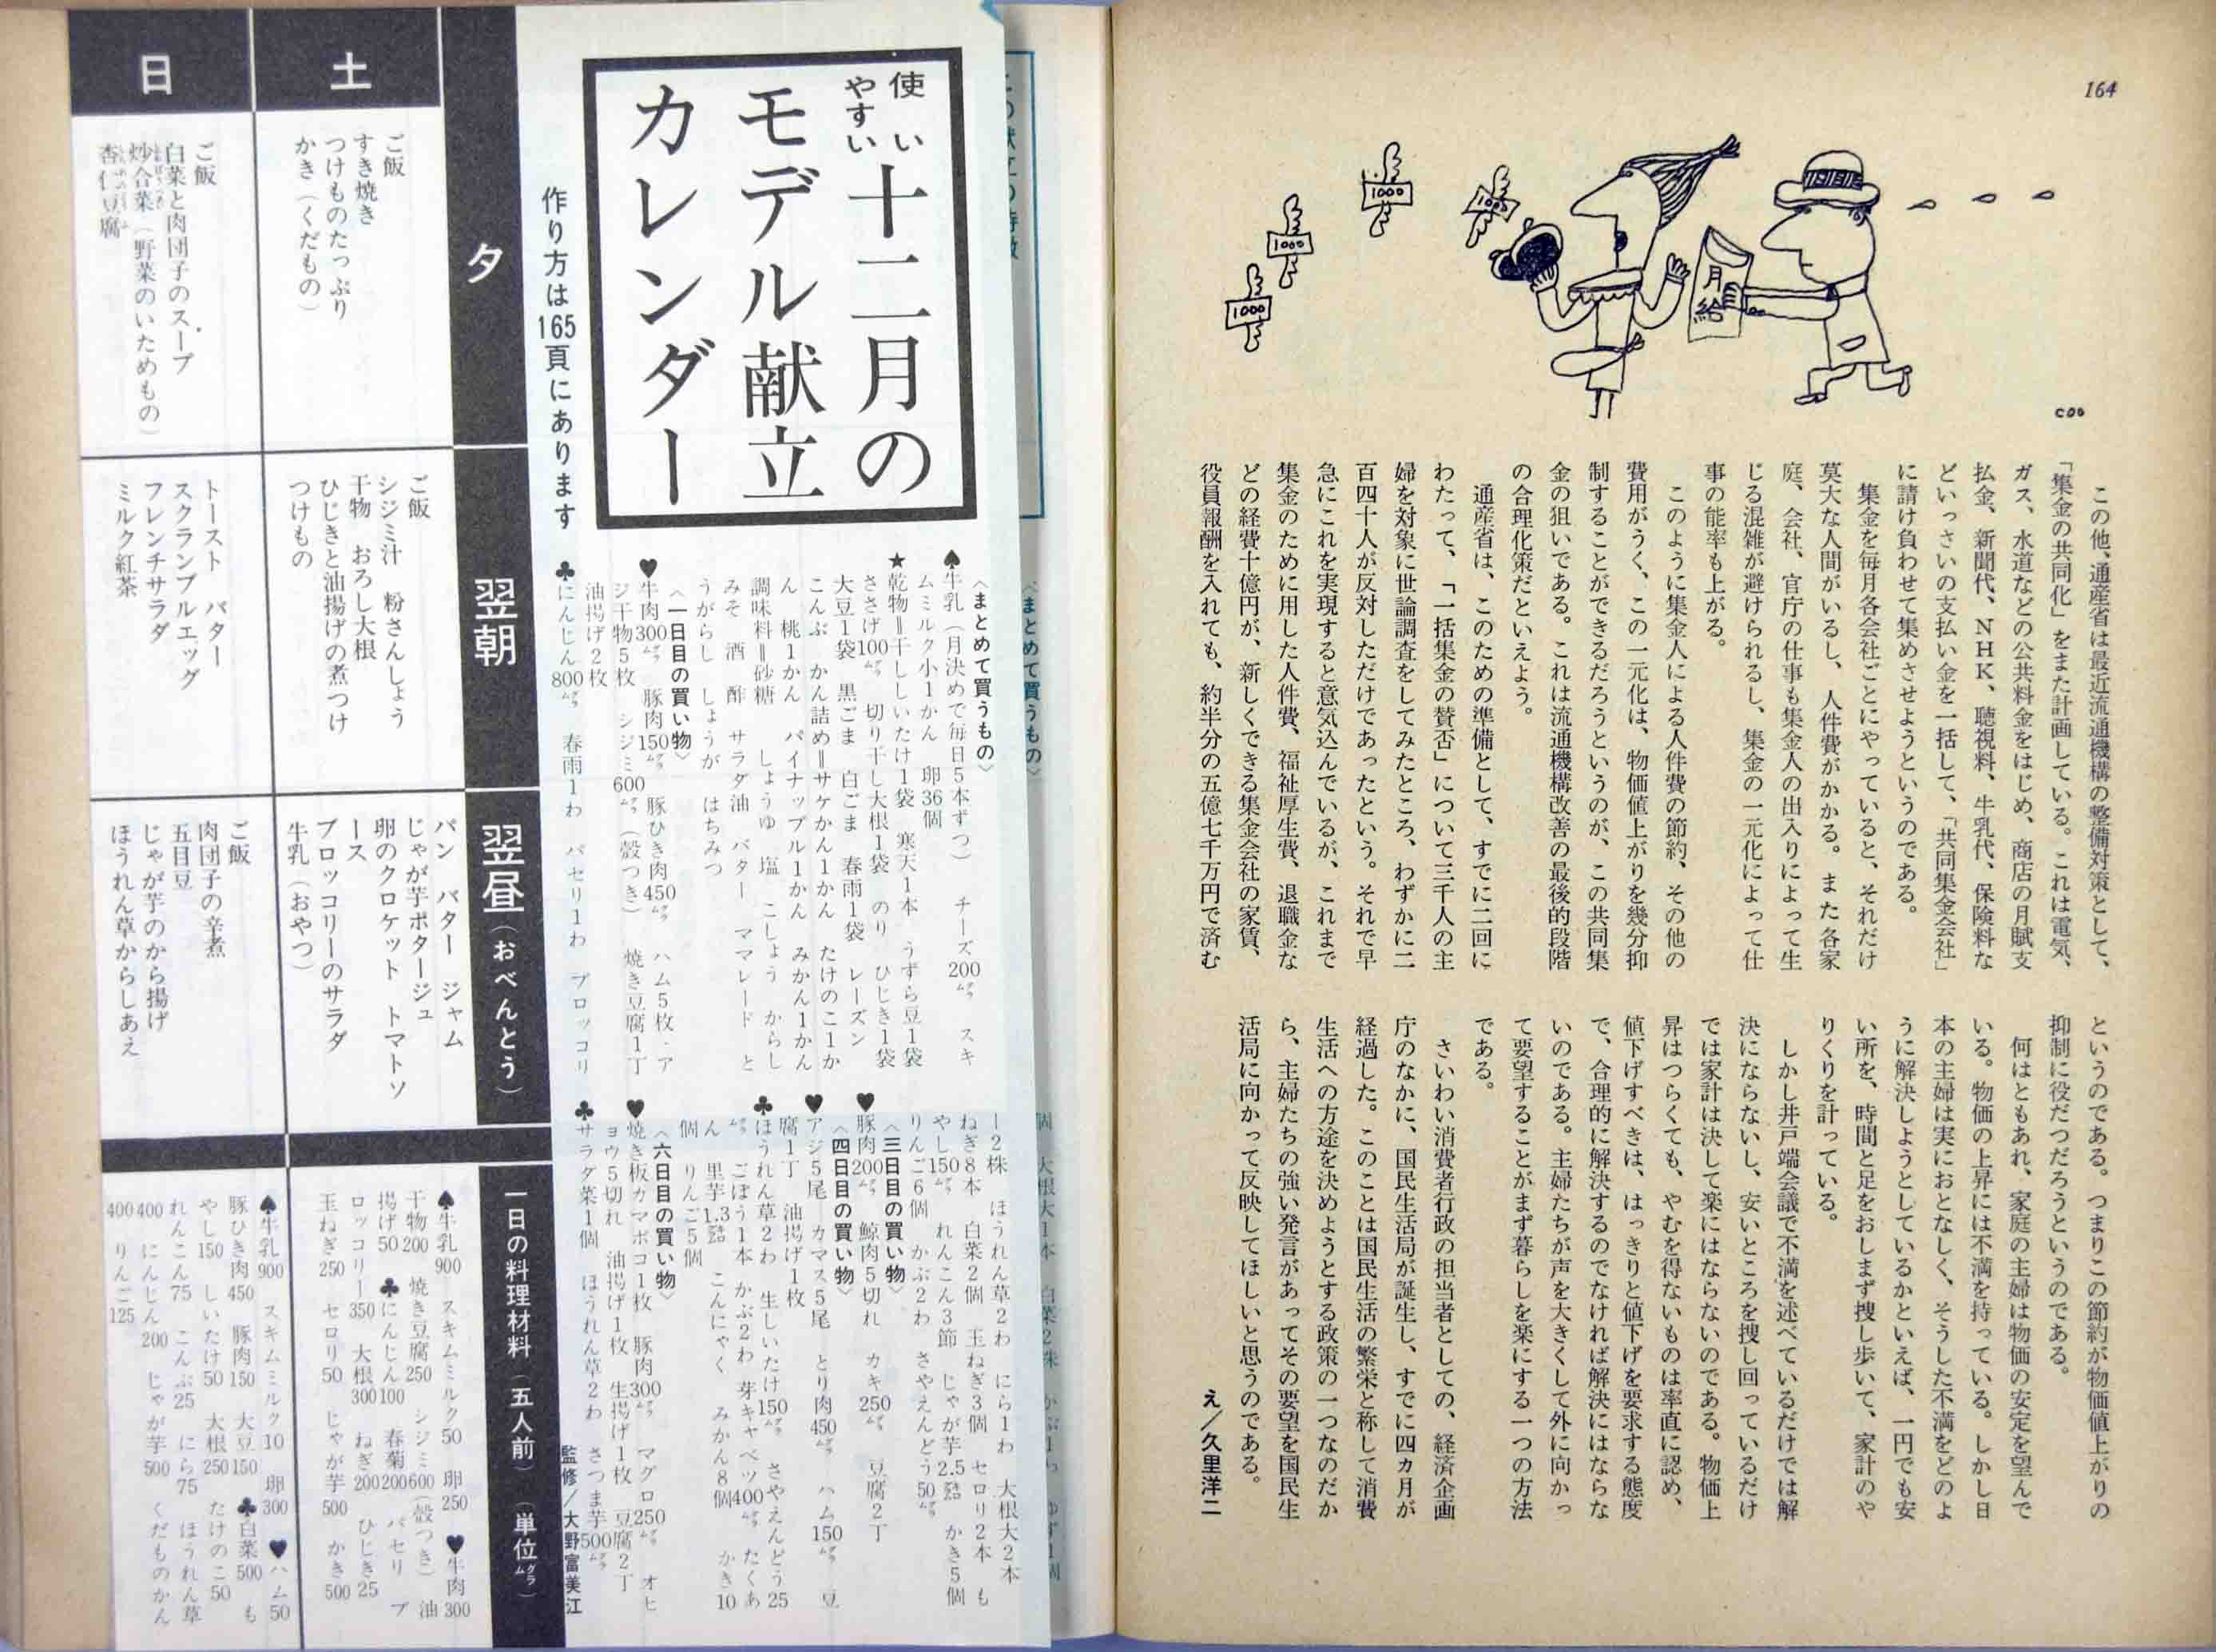 164
1000
1000
1000
1000
月給
COO
この他、通産省は最近流通機構の整備対策として、
「集金の共同化」をまた計画している。これは電気、
ガス、水道などの公共料金をはじめ、商店の月賦支
払金、新聞代、NHK、聴視料、牛乳代、保険料な
どいっさいの支払い金を一括して、「共同集金会社」
に請け負わせて集めさせようというのである。
集金を毎月各会社ごとにやっていると、それだけ
莫大な人間がいるし、人件費がかかる。また各家
庭、会社、官庁の仕事も集金人の出入りによって生
じる混雑が避けられるし、集金の一元化によって仕
事の能率も上がる。
このように集金人による人件費の節約、その他の
費用がうく、この一元化は、物価値上がりを幾分抑
制することができるだろうというのが、この共同集
金の狙いである。これは流通機構改善の最後的段階
の合理化策だといえよう。
通産省は、このための準備として、すでに二回に
わたって、「一括集金の賛否」について三千人の主
婦を対象に世論調査をしてみたところ、わずかに二
百四十人が反対しただけであったという。それで早
急にこれを実現すると意気込んでいるが、これまで
集金のために用した人件費、福祉厚生費、退職金な
どの経費十億円が、新しくできる集金会社の家賃、
役員報酬を入れても、約半分の五億七千万円で済む
というのである。つまりこの節約が物価値上がりの
抑制に役だつだろうというのである。
何はともあれ、家庭の主婦は物価の安定を望んで
いる。物価の上昇には不満を持っている。しかし日
本の主婦は実におとなしく、そうした不満をどのよ
うに解決しようとしているかといえば、一円でも安
い所を、時間と足をおしまず捜し歩いて、家計のや
りくりを計っている。
しかし井戸端会議で不満を述べているだけでは解
決にならないし、安いところを捜し回っているだけ
では家計は決して楽にはならないのである。物価上
昇はつらくても、やむを得ないものは率直に認め、
値下げすべきは、はっきりと値下げを要求する態度
で、合理的に解決するのでなければ解決にはならな
いのである。主婦たちが声を大きくして外に向かっ
て要望することがまず暮らしを楽にする一つの方法
である。
さいわい消費者行政の担当者としての、経済企画
庁のなかに、国民生活局が誕生し、すでに四カ月が
経過した。このことは国民生活の繁栄と称して消費
生活への方途を決めようとする政策の一つなのだか
ら、主婦たちの強い発言があってその要望を国民生
活局に向かって反映してほしいと思うのである。
え／久里洋二
〈まとめて買うもの〉
使いやすい
十二月の
モデル献立
カレンダー
作り方は165頁にあります
〈まとめて買うもの〉
♠牛乳（月決めで毎日5本ずつ）　チーズ200㌘　スキ
ムミルク小1かん　卵36個
★乾物＝干ししいたけ1袋　寒天1本　うずら豆1袋
ささげ100㌘　切り干し大根1袋　のり　ひじき1袋
大豆1袋　黒ごま　白ごま　春雨1袋　レーズン
こんぶ　かん詰め＝サケかん1かん　たけのこ1か
ん　桃1かん　パイナップル1かん　みかん1かん
調味料＝砂糖　しょうゆ　塩　こしょう　からし
みそ　酒　酢　サラダ油　バター　ママレード　と
うがらし　しょうが　はちみつ
〈一日目の買い物〉
♥牛肉300㌘　豚肉150㌘　豚ひき肉450㌘　ハム5枚　ア
ジ干物5枚　シジミ600㌘（殻つき）　焼き豆腐1丁
油揚げ2枚
♣にんじん800㌘　春雨1わ　パセリ1わ　ブロッコリ
ー2株　ほうれん草2わ　にら1わ　大根大2本
ねぎ8本　白菜2個　玉ねぎ3個　セロリ2本　も
やし150㌘　れんこん3節　じゃが芋2.5㌔　かき5個
りんご6個　かぶ2わ　さやえんどう50㌘
〈三日目の買い物〉
♥豚肉200㌘　鯨肉5切れ　カキ250㌘　豆腐2丁
〈四日目の買い物〉
♥アジ5尾　カマス5尾　とり肉450㌘　ハム150㌘　豆
腐1丁　油揚げ1枚
♣ほうれん草2わ　生しいたけ150㌘　さやえんどう25
㌘　ごぼう1本　かぶ2わ　芽キャベツ400㌘　たくあ
ん　里芋1.3㌔　こんにゃく　みかん8個　かき10
個　りんご5個
〈六日目の買い物〉
♥焼き板カマボコ1枚　豚肉300㌘　マグロ250㌘　オヒ
ョウ5切れ　油揚げ1枚　生揚げ1枚　豆腐2丁
♣サラダ菜1個　ほうれん草2わ　さつま芋500㌘
監修／大野富美江
夕
翌朝
翌昼（おべんとう）
一日の料理材料（五人前）（単位㌘）
土
ご飯
すき焼き
つけものたっぷり
かき（くだもの）
ご飯
シジミ汁　粉さんしょう
干物　おろし大根
ひじきと油揚げの煮つけ
つけもの
パン　バター　ジャム
じゃが芋ポタージュ
卵のクロケット　トマトソ
ース
ブロッコリーのサラダ
牛乳（おやつ）
♠牛乳900　スキムミルク50　卵250　♥牛肉300
干物200　焼き豆腐250　シジミ600（殻つき）　油
揚げ50　♣にんじん100　春菊200　パセリ　ブ
ロッコリー350　大根300　ねぎ200　ひじき25
玉ねぎ250　セロリ50　じゃが芋500　かき500
日
ご飯
白菜と肉団子のスープ
炒合菜（野菜のいためもの）
杏仁豆腐
トースト　バター
スクランブルエッグ
フレンチサラダ
ミルク紅茶
ご飯
肉団子の辛煮
五目豆
じゃが芋のから揚げ
ほうれん草からしあえ
♠牛乳900　スキムミルク10　卵300　♥ハム50
豚ひき肉450　豚肉150　大豆150　♣白菜500　も
やし150　しいたけ50　大根250　たけのこ50
れんこん75　こんぶ25　にら75　ほうれん草
400　にんじん200　じゃが芋500　くだものかん
400　りんご125